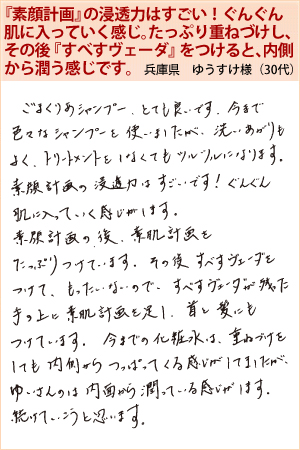 『素顔計画』の浸透力はすごい！ぐんぐん
肌に入っていく感じ。たっぷり重ねづけし、
その後『すべすヴェーダ』をつけると、内側
から潤う感じです。 兵庫県 ゆうすけ様（30代）
ごまくりあシャンプー、とても良いです。今まで
色々なシャンプーを使いましたが、洗いあがりも
よく、トリートメントをしなくてもツルツルになります。
素顔計画の浸透力はすごいです！ぐんぐん
肌に入っていく感じがします。
素顔計画の後、素肌計画を
たっぷりつけています。その後すべすヴェーダを
つけて、もったいないので、すべすヴェーダが残った
手の上に素肌計画を足し、首と髪にも
つけています。今までの化粧水は、重ねづけを
しても内側からつっぱってくる感じがしてましたが、
ゆいさんのは内面から潤っている感じがします。
続けていこうと思います。